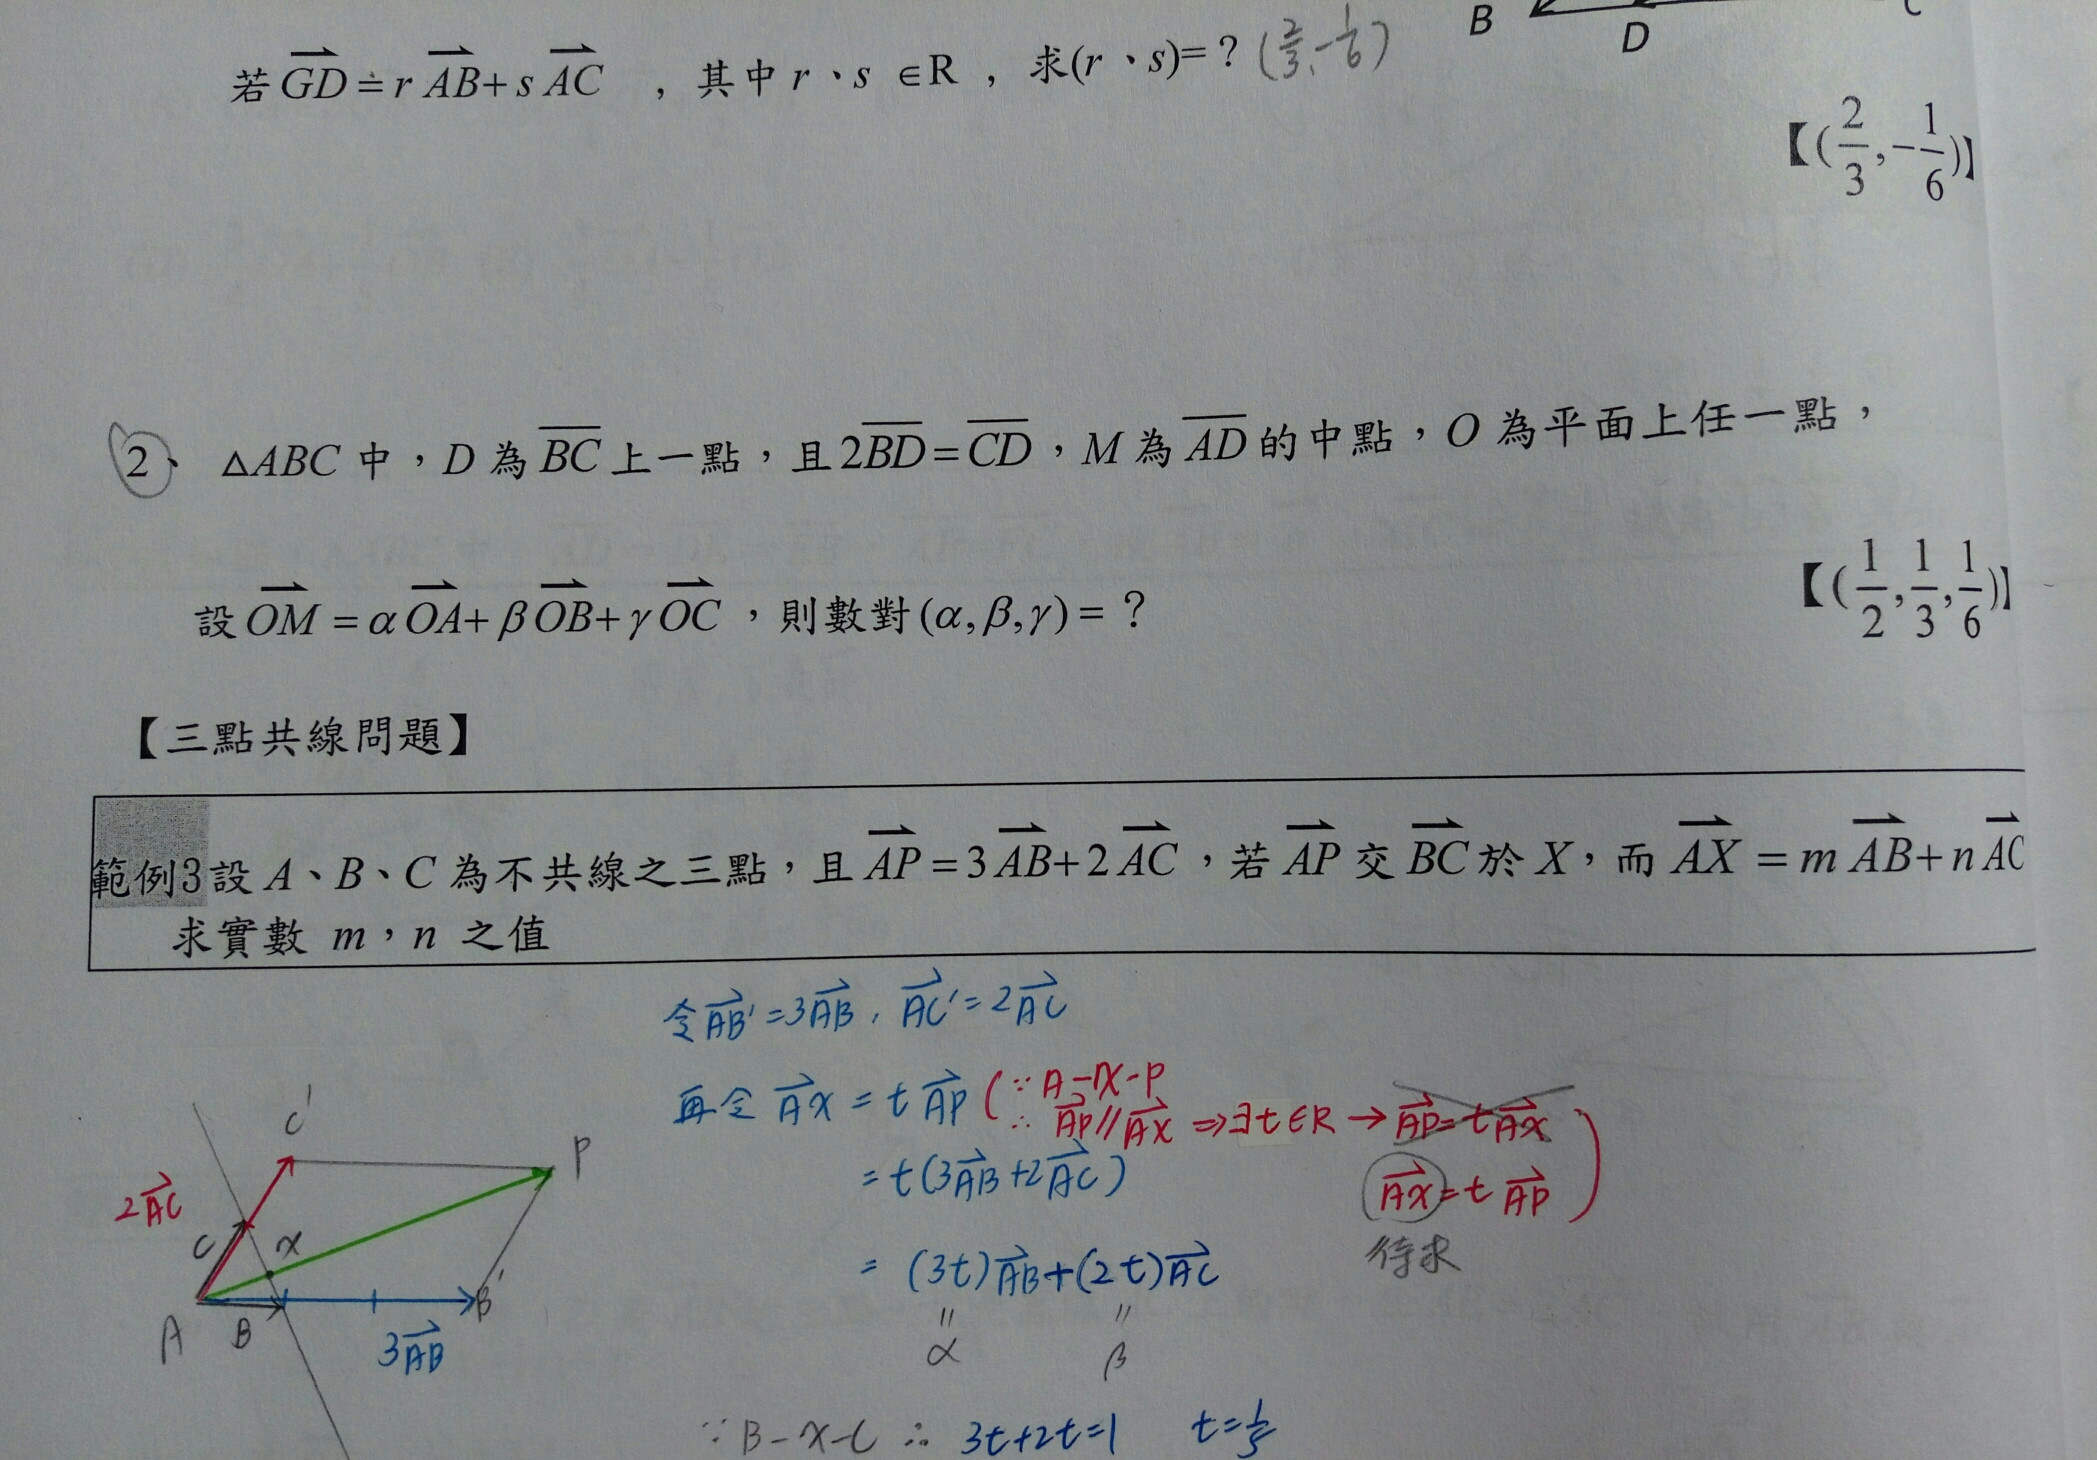 B D C
若 GD = r AB + s AC ，其中 r、s ∈R ，求(r、s)=？(2/3、-1/6)
【(2/3,-1/6)】
2、 △ABC 中，D 為 BC 上一點，且2BD=CD，M 為 AD 的中點，O 為平面上任一點，
設 OM = αOA+ βOB+ γOC ，則數對(α,β,γ)= ？
【(1/2,1/3,1/6)】
【三點共線問題】
範例3設 A、B、C 為不共線之三點，且 AP = 3AB+2AC，若 AP 交 BC 於 X，而 AX = m AB+n AC
求實數 m，n 之值
令AB'=3AB，AC'=2AC
再令 AX = t AP (∵A-X-P
∴ AP//AX ⇒∃t∈R → AP=tAX
= t(3AB+2AC)
AX=t AP )
待求
= (3t)AB+(2t)AC
= =
α β
∵B-X-C ∴ 3t+2t=1 t=1/5
C' P
2AC
C X
A B B'
3AB